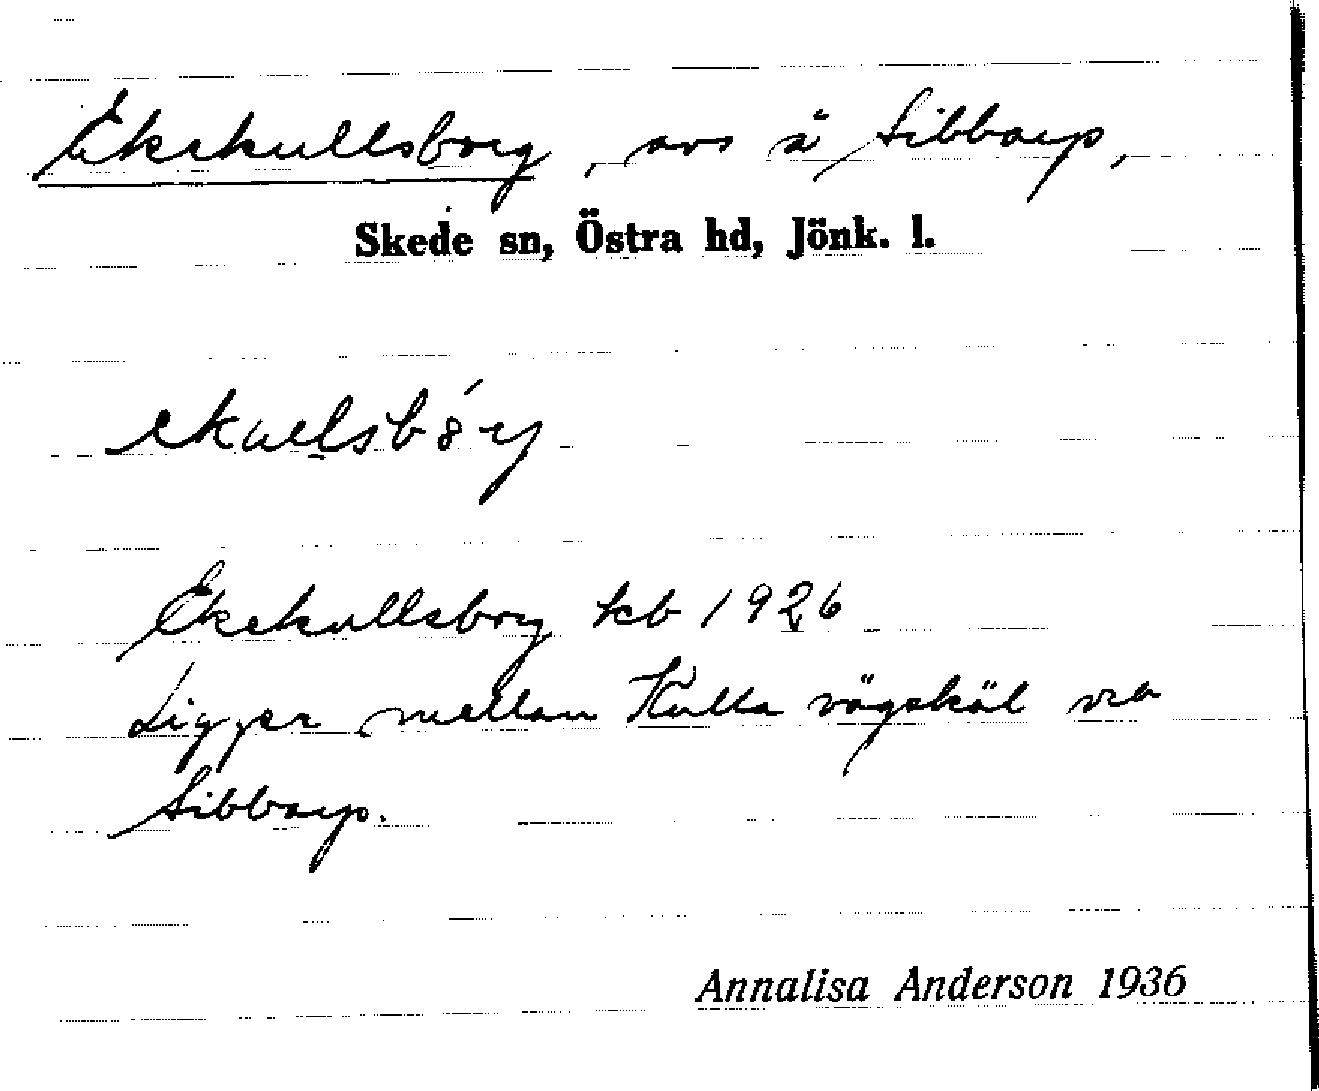 Ekskullsborg, avs å Sibbarp,
Skede sn, Östra hd, Jönk. l.
Ekskullsborg kb 1926
Ligger mellan Kulla vägskäl och
Sibbarp.
Annalisa Anderson 1936